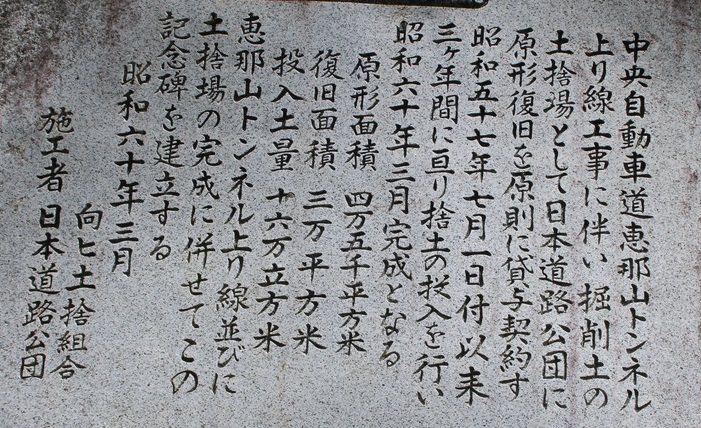 中央自動車道恵那山トンネル
上り線工事に伴い掘削土の
土捨場として日本道路公団に
原形復旧を原則に貸与契約す
昭和五十七年七月一日付以来
三ヶ年間に亘り捨土の投入を行い
昭和六十年三月完成となる
原形面積 四万五千平方米
復旧面積 三万平方米
投入土量 十六万立方米
恵那山トンネル上り線並びに
土捨場の完成に併せてこの
記念碑を建立する
昭和六十年三月
向ヒ土捨組合
施工者 日本道路公団